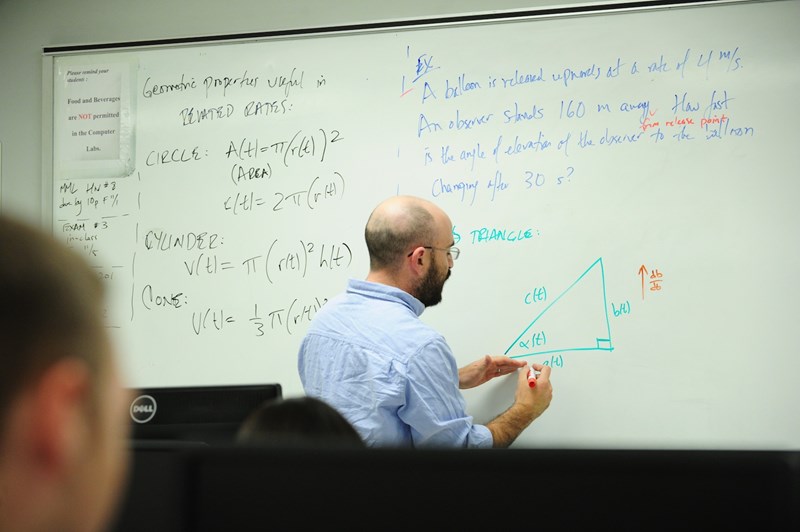 Please remind your
students :
Food and Beverages
are NOT permitted
in the Computer
Labs.
MML HW #8
due by 10p F
EXAM #3
in-class
Geometric properties useful in
RELATED RATES:
CIRCLE: A(t)=π(r(t))²
(AREA)
c(t)=2π(r(t))
CYLINDER:
V(t)=π(r(t))²h(t)
CONE:
V(t)=1/3π(r(t))²
EX.
A balloon is released upwards at a rate of 4 m/s.
An observer stands 160 m away. How fast
from release point
is the angle of elevation of the observer to the balloon
changing after 30 s?
TRIANGLE:
c(t)
b(t)
db/dt
α(t)
(t)
DELL